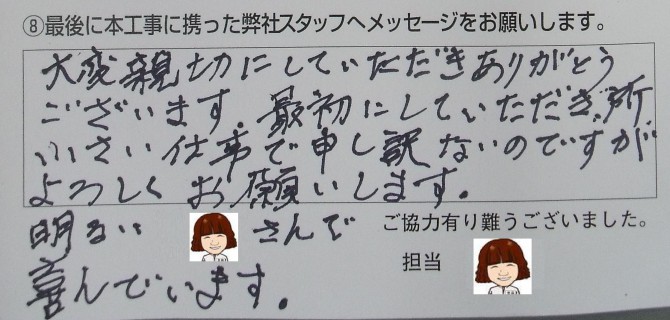 ⑧最後に本工事に携った弊社スタッフへメッセージをお願いします。
大変親切にしていただきありがとう
ございます。最初にしていただき、所
いさい仕事で申し訳ないのですが
よろしくお願いします。
明るい さんで
喜んでいます。
ご協力有り難うございました。
担当